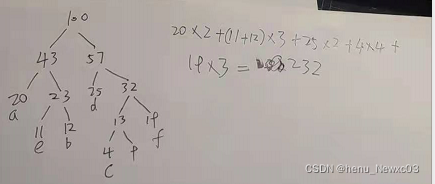 100
43 57
20 23 25 32
a d
11 12 13 19
e b f
4 9
c
20×2+(11+12)×3+25×2+4×4+
19×3= 232
CSDN @henu_Newxc03